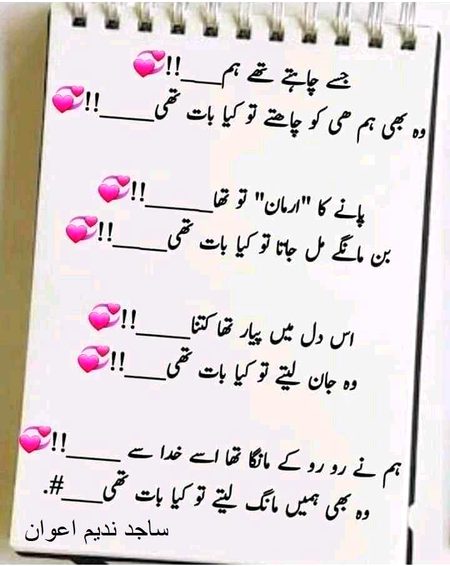 جسے چاہتے تھے ہم____!!💞
وہ بھی ہم ھی کو چاھتے تو کیا بات تھی_____!!💞
پانے کا "ارمان" تو تھا______!!💞
بن مانگے مل جاتا تو کیا بات تھی_____!!💞
اس دل میں پیار تھا کتنا_____!!💞
وہ جان لیتے تو کیا بات تھی____!!💞
ہم نے رو رو کے مانگا تھا اسے خدا سے _____!!💞
وہ بھی ہمیں مانگ لیتے تو کیا بات تھی____#.
ساجد ندیم اعوان